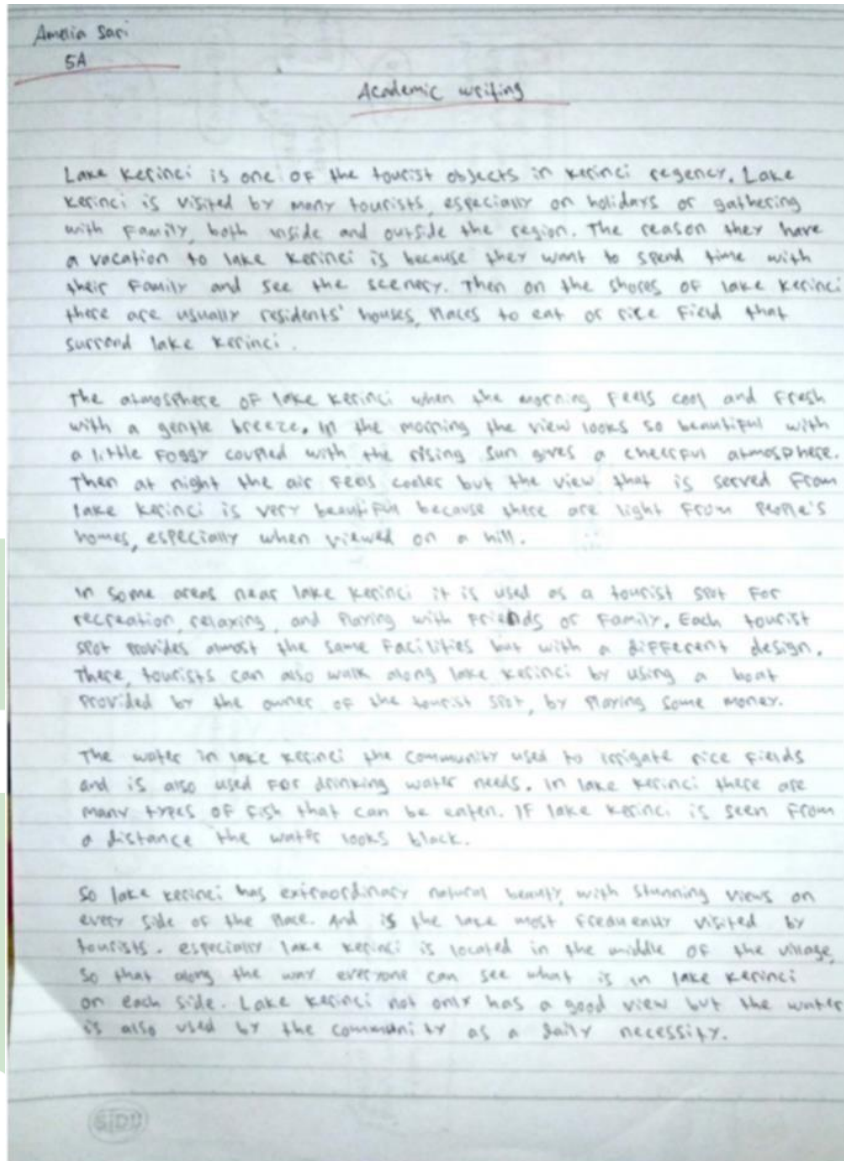 Amelia Sari
5A
Academic writing
Lake Kerinci is one of the tourist objects in Kerinci regency. Lake
Kerinci is visited by many tourists, especially on holidays or gathering
with family, both inside and outside the region. The reason they have
a vacation to lake Kerinci is because they want to spend time with
their family and see the scenery. Then on the shores of lake Kerinci
there are usually residents' houses, places to eat or rice field that
surrond lake Kerinci.
The atmosphere of lake Kerinci when the morning feels cool and fresh
with a gentle breeze. In the morning the view looks so beautiful with
a little foggy coupled with the rising sun gives a cheerful atmosphere.
Then at night the air feels cooler but the view that is served from
lake Kerinci is very beautiful because there are light from people's
homes, especially when viewed on a hill.
In some areas near lake Kerinci it is used as a tourist spot for
recreation, relaxing, and playing with friends or family. Each tourist
spot provides almost the same facilities but with a different design.
There, tourists can also walk along lake Kerinci by using a boat
provided by the owner of the tourist spot, by playing some money.
The water in lake Kerinci the community used to irrigate rice fields
and is also used for drinking water needs. In lake Kerinci there are
many types of fish that can be eaten. If lake Kerinci is seen from
a distance the water looks black.
So lake Kerinci has extraordinary natural beauty, with stunning views on
every side of the place. And is the lake most frequently visited by
tourists. especially lake Kerinci is located in the middle of the village,
so that along the way everyone can see what is in lake Kerinci
on each side. Lake Kerinci not only has a good view but the water
is also used by the community as a daily necessity.
SIDU